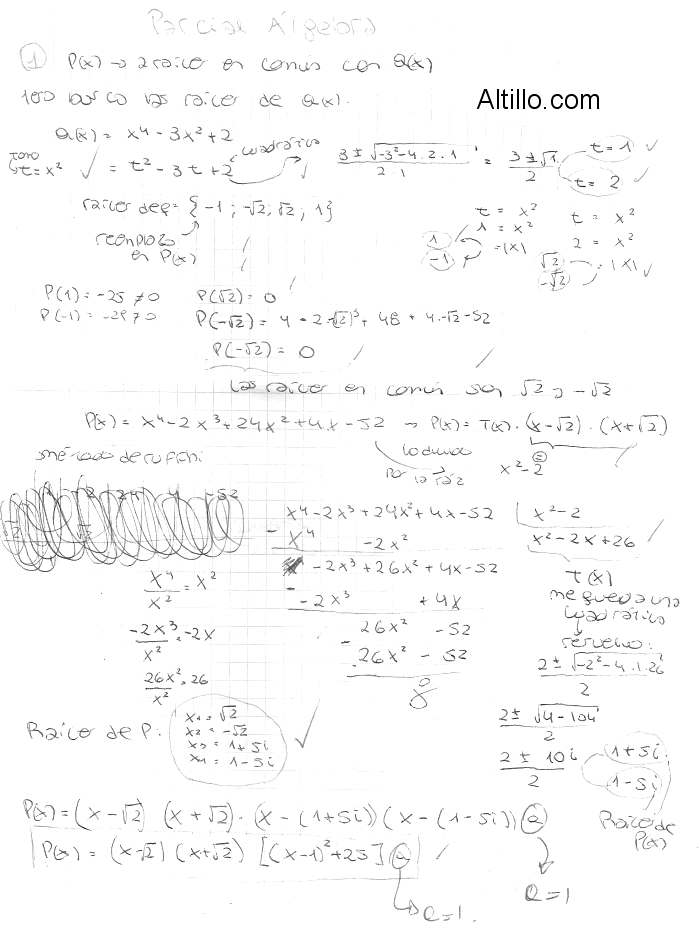 Parcial Álgebra
① P(x) → 2 raíces en común con Q(x)
Altillo.com
1ero busco las raíces de Q(x).
Q(x) = x⁴ - 3x² + 2
tomo t = x² ✓ = t² - 3t + 2 cuadrática
(3 ± √(-3² - 4 . 2 . 1)) / (2 . 1) = (3 ± √1) / 2
t = 1 ✓
t = 2 ✓
raíces de Q = { -1 ; -√2 ; √2 ; 1 }
reemplazo en P(x)
t = x²
1 = x²
= |x|
1
-1
t = x²
2 = x²
√2 = |x| ✓
-√2
P(1) = -25 ≠ 0 P(√2) = 0
P(-1) = -29 ≠ 0 P(-√2) = 4 - 2 . -√2)³ + 48 + 4 . -√2 - 52
P(-√2) = 0
Las raíces en común son √2 y -√2
P(x) = x⁴ - 2x³ + 24x² + 4x - 52 → P(x) = T(x) . (x - √2) . (x + √2)
x² - 2
método de ruffini
x⁴ - 2x³ + 24x² + 4x - 52 | x² - 2
- x⁴ - 2x² x² - 2x + 26
- 2x³ + 26x² + 4x - 52 T(x)
- - 2x³ + 4x
- 26x² - 52
26x² - 52
0
x⁴ / x² = x²
-2x³ / x² = -2x
26x² / x² = 26
me queda una cuadrática
resuelvo:
(2 ± √(-2² - 4 . 1 . 26)) / 2
(2 ± √(4 - 104)) / 2
(2 ± 10i) / 2
1 + 5i
1 - 5i
Raíces de P(x)
Raíces de P:
x₁ = √2
x₂ = -√2
x₃ = 1 + 5i
x₄ = 1 - 5i
✓
P(x) = (x - √2) (x + √2) . (x - (1 + 5i)) (x - (1 - 5i)) a
a = 1
P(x) = (x - √2) (x + √2) [(x - 1)² + 25] a
a = 1.